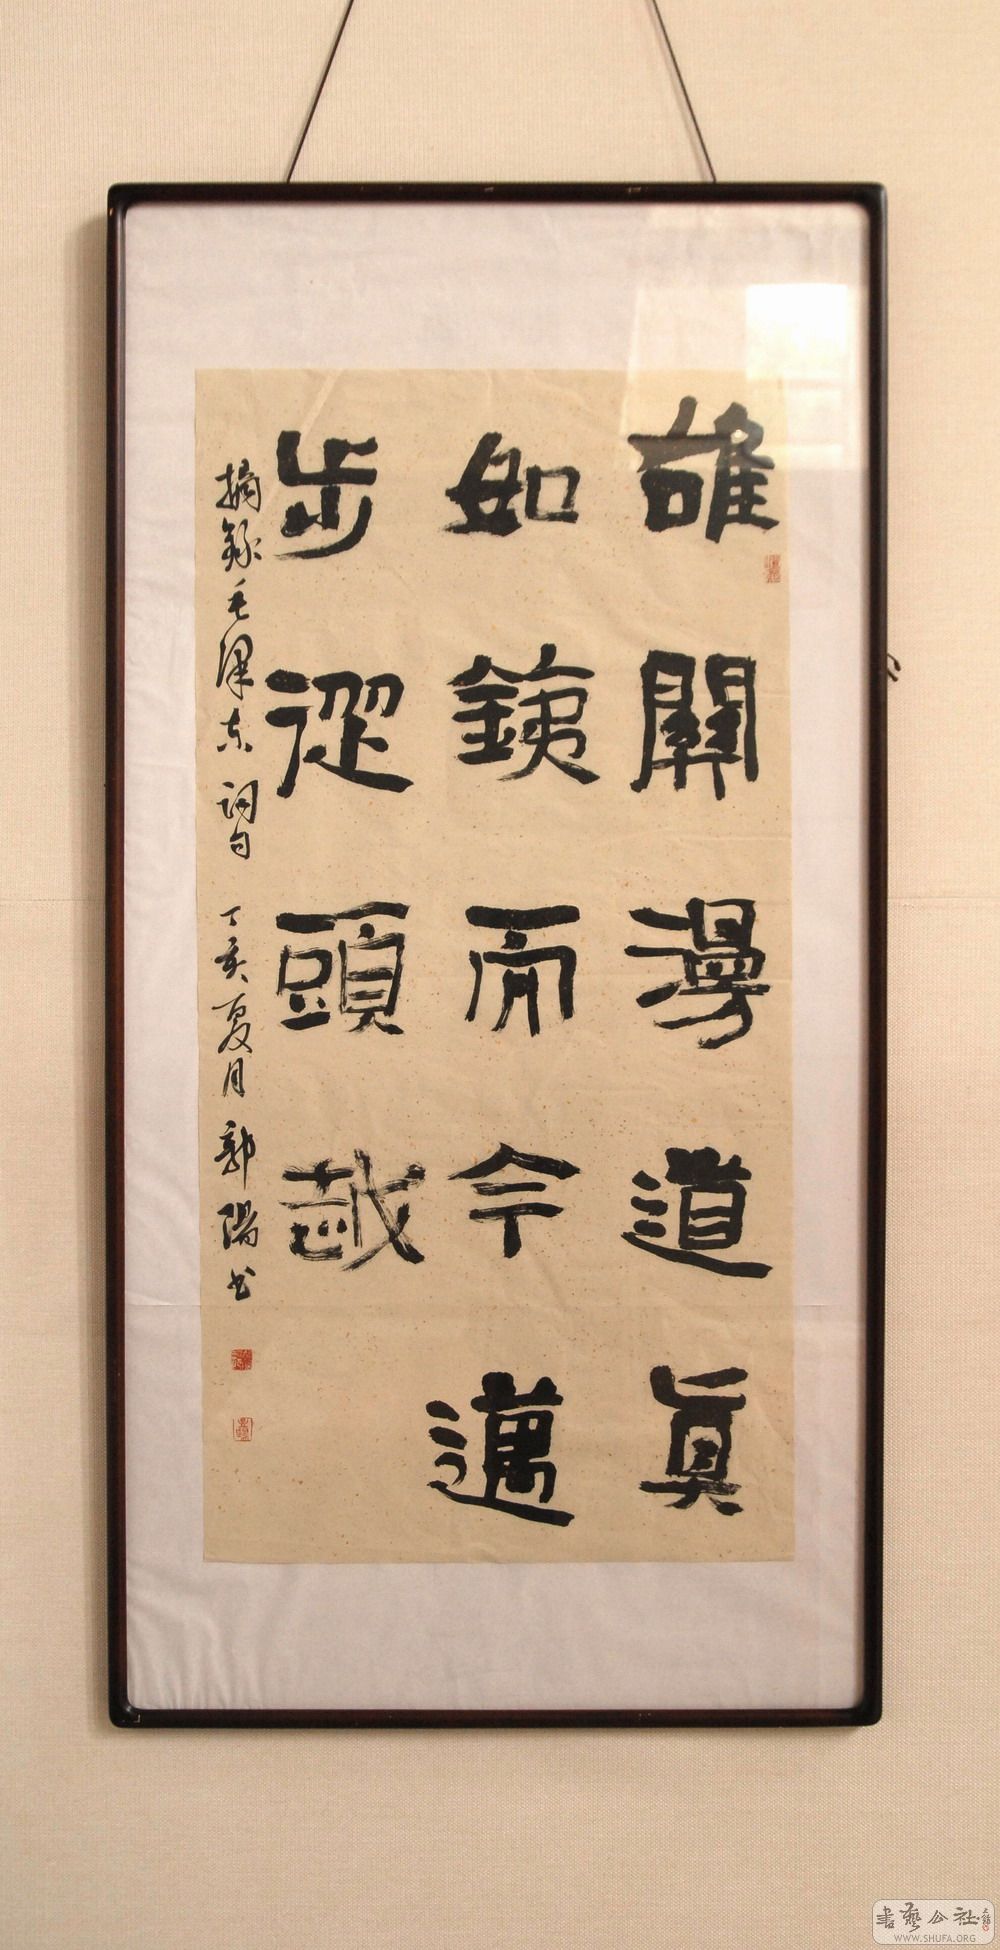 雄關漫道真
如鐵而今邁
步從頭越
摘錄毛澤東詞句 丁亥夏月 郭陽书
書藝公社
WWW.SHUFA.ORG